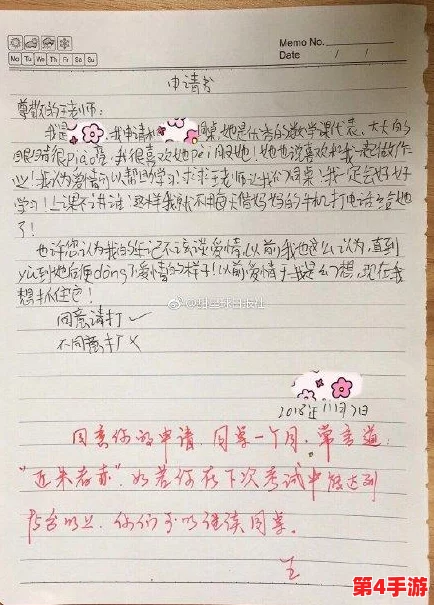 Memo No.
Mo Tu We Th Fr Sa Su
Date / /
申请书
尊敬的王老师：
我是 ，我申请和 同桌，她是优秀的数学课代表，大大的
眼睛很piào亮，我很喜欢她Pèi服她！她也说喜欢和我一起做作
业！我认为爱情可以帮助学习，求求王老师让我们同桌！我一定会好好
学习！上课不讲话！这样我就不用每天借妈妈的手机打电话给她
了！
也许您认为我的年纪不该谈爱情，以前我也这么认为，直到
yù到她后便dǒng了爱情的样子！以前爱情 我是么想，现在我
想抓住它！
同意请打✓
不同意打×
@四至球日报社
2018年11月7日
同意你的申请，同桌一个月，常言道：
“近朱者赤”，如若你在下次考试中能达到
95分以上，你们可以继续同桌。
王
第4手游